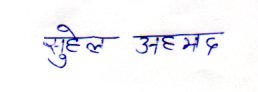 सुहेल अहमद